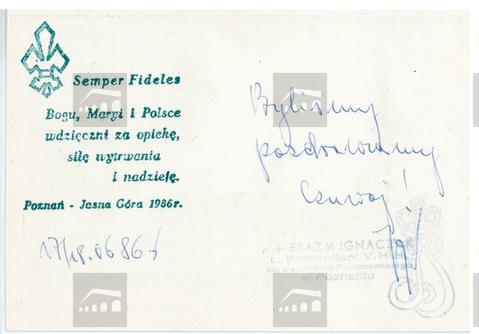 Semper Fideles
Bogu, Maryi i Polsce
wdzięczni za opiekę,
siłę wytrwania
i nadzieję.
Poznań - Jasna Góra 1986r.
17/18.06 86
Byliśmy
pozdrawiamy
Czuwaj!
ERAZM IGNACZAK
Komendant V. H.H.
w Poznaniu